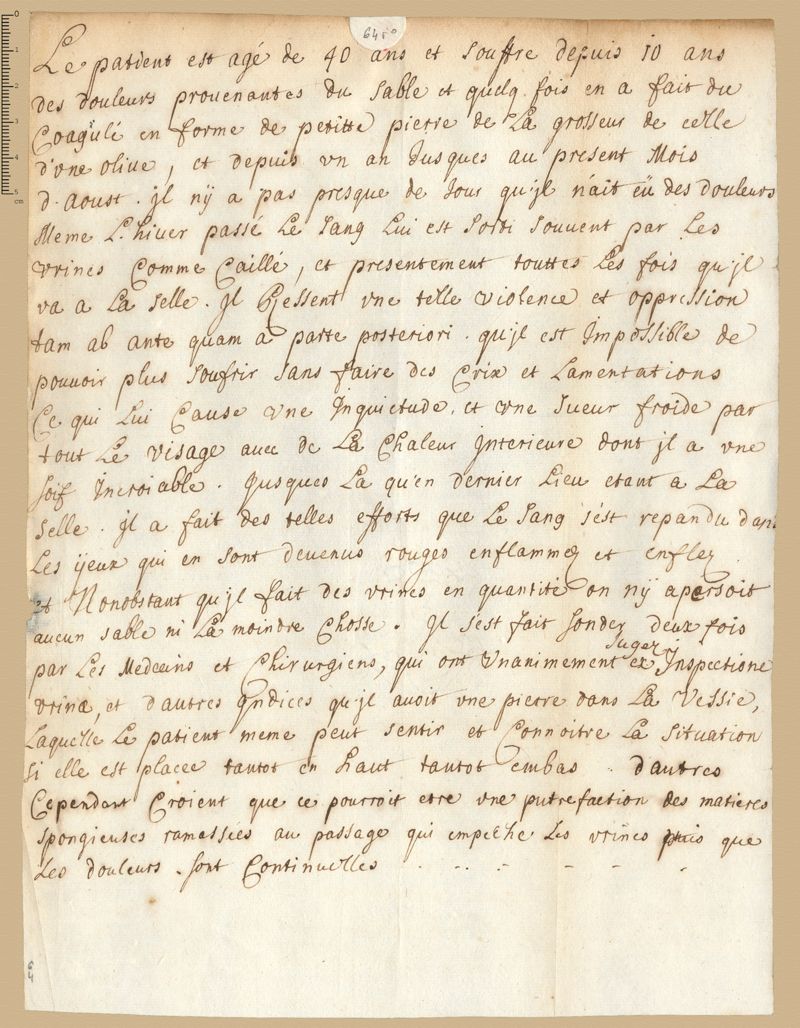 6450
Le patient est agé de 40 ans et souffre depuis 10 ans
des douleurs provenantes du Sable et quelq. fois en a fait du
Coagulé en forme de petitte pierre de La grosseur de celle
d'vne oliue, et depuis vn an Jusques au present Mois
d'Aoust. jl nÿ a pas presque de Jour qu'jl n'ait eü des douleurs
Meme L'hiuer passé Le Sang Lui est Sorti Souuent par Les
vrines Comme Caillé, et presentement touttes Les fois qu'jl
va a La Selle. Jl Ressent vne telle violence et oppression
tam ab ante quam a parte posteriori. qu'jl est Impossible de
pouuoir plus Soufrir Sans faire des Crix et Lamentations
Ce qui Lui Cause vne Inquietude, et vne Sueur froide par
tout Le visage auec de La Chaleur jnterieure dont jl a vne
Soif Incroiable. Jusques La qu'en dernier Lieu etant a La
Selle. jl a fait des telles efforts que Le Sang s'ést repandu dans
Les ÿeux qui en Sont deuenus rouges enflammez et enflez.
et Nonobstant qu'jl fait des vrines en quantité on nÿ apersoit
aucun Sable ni La moindre Chosse. Jl s'est fait Sonder deux fois
par Les Medecins et Chirurgiens, qui ont Vnanimement Jugez ex Inspectione
vrina, et d'autres Jndices qu'jl auoit vne pierre dans La Vessie,
Laquelle Le patient meme peut sentir et Connoitre La Situation
Si elle est placee tantot en haut tantot embas. d'autres
Cependant Croient que ce pourroit etre vne putrefaction des matieres
Spongieuses ramassées au passage qui empeche Les vrines puis que
Les douleurs. sont Continuelles
64